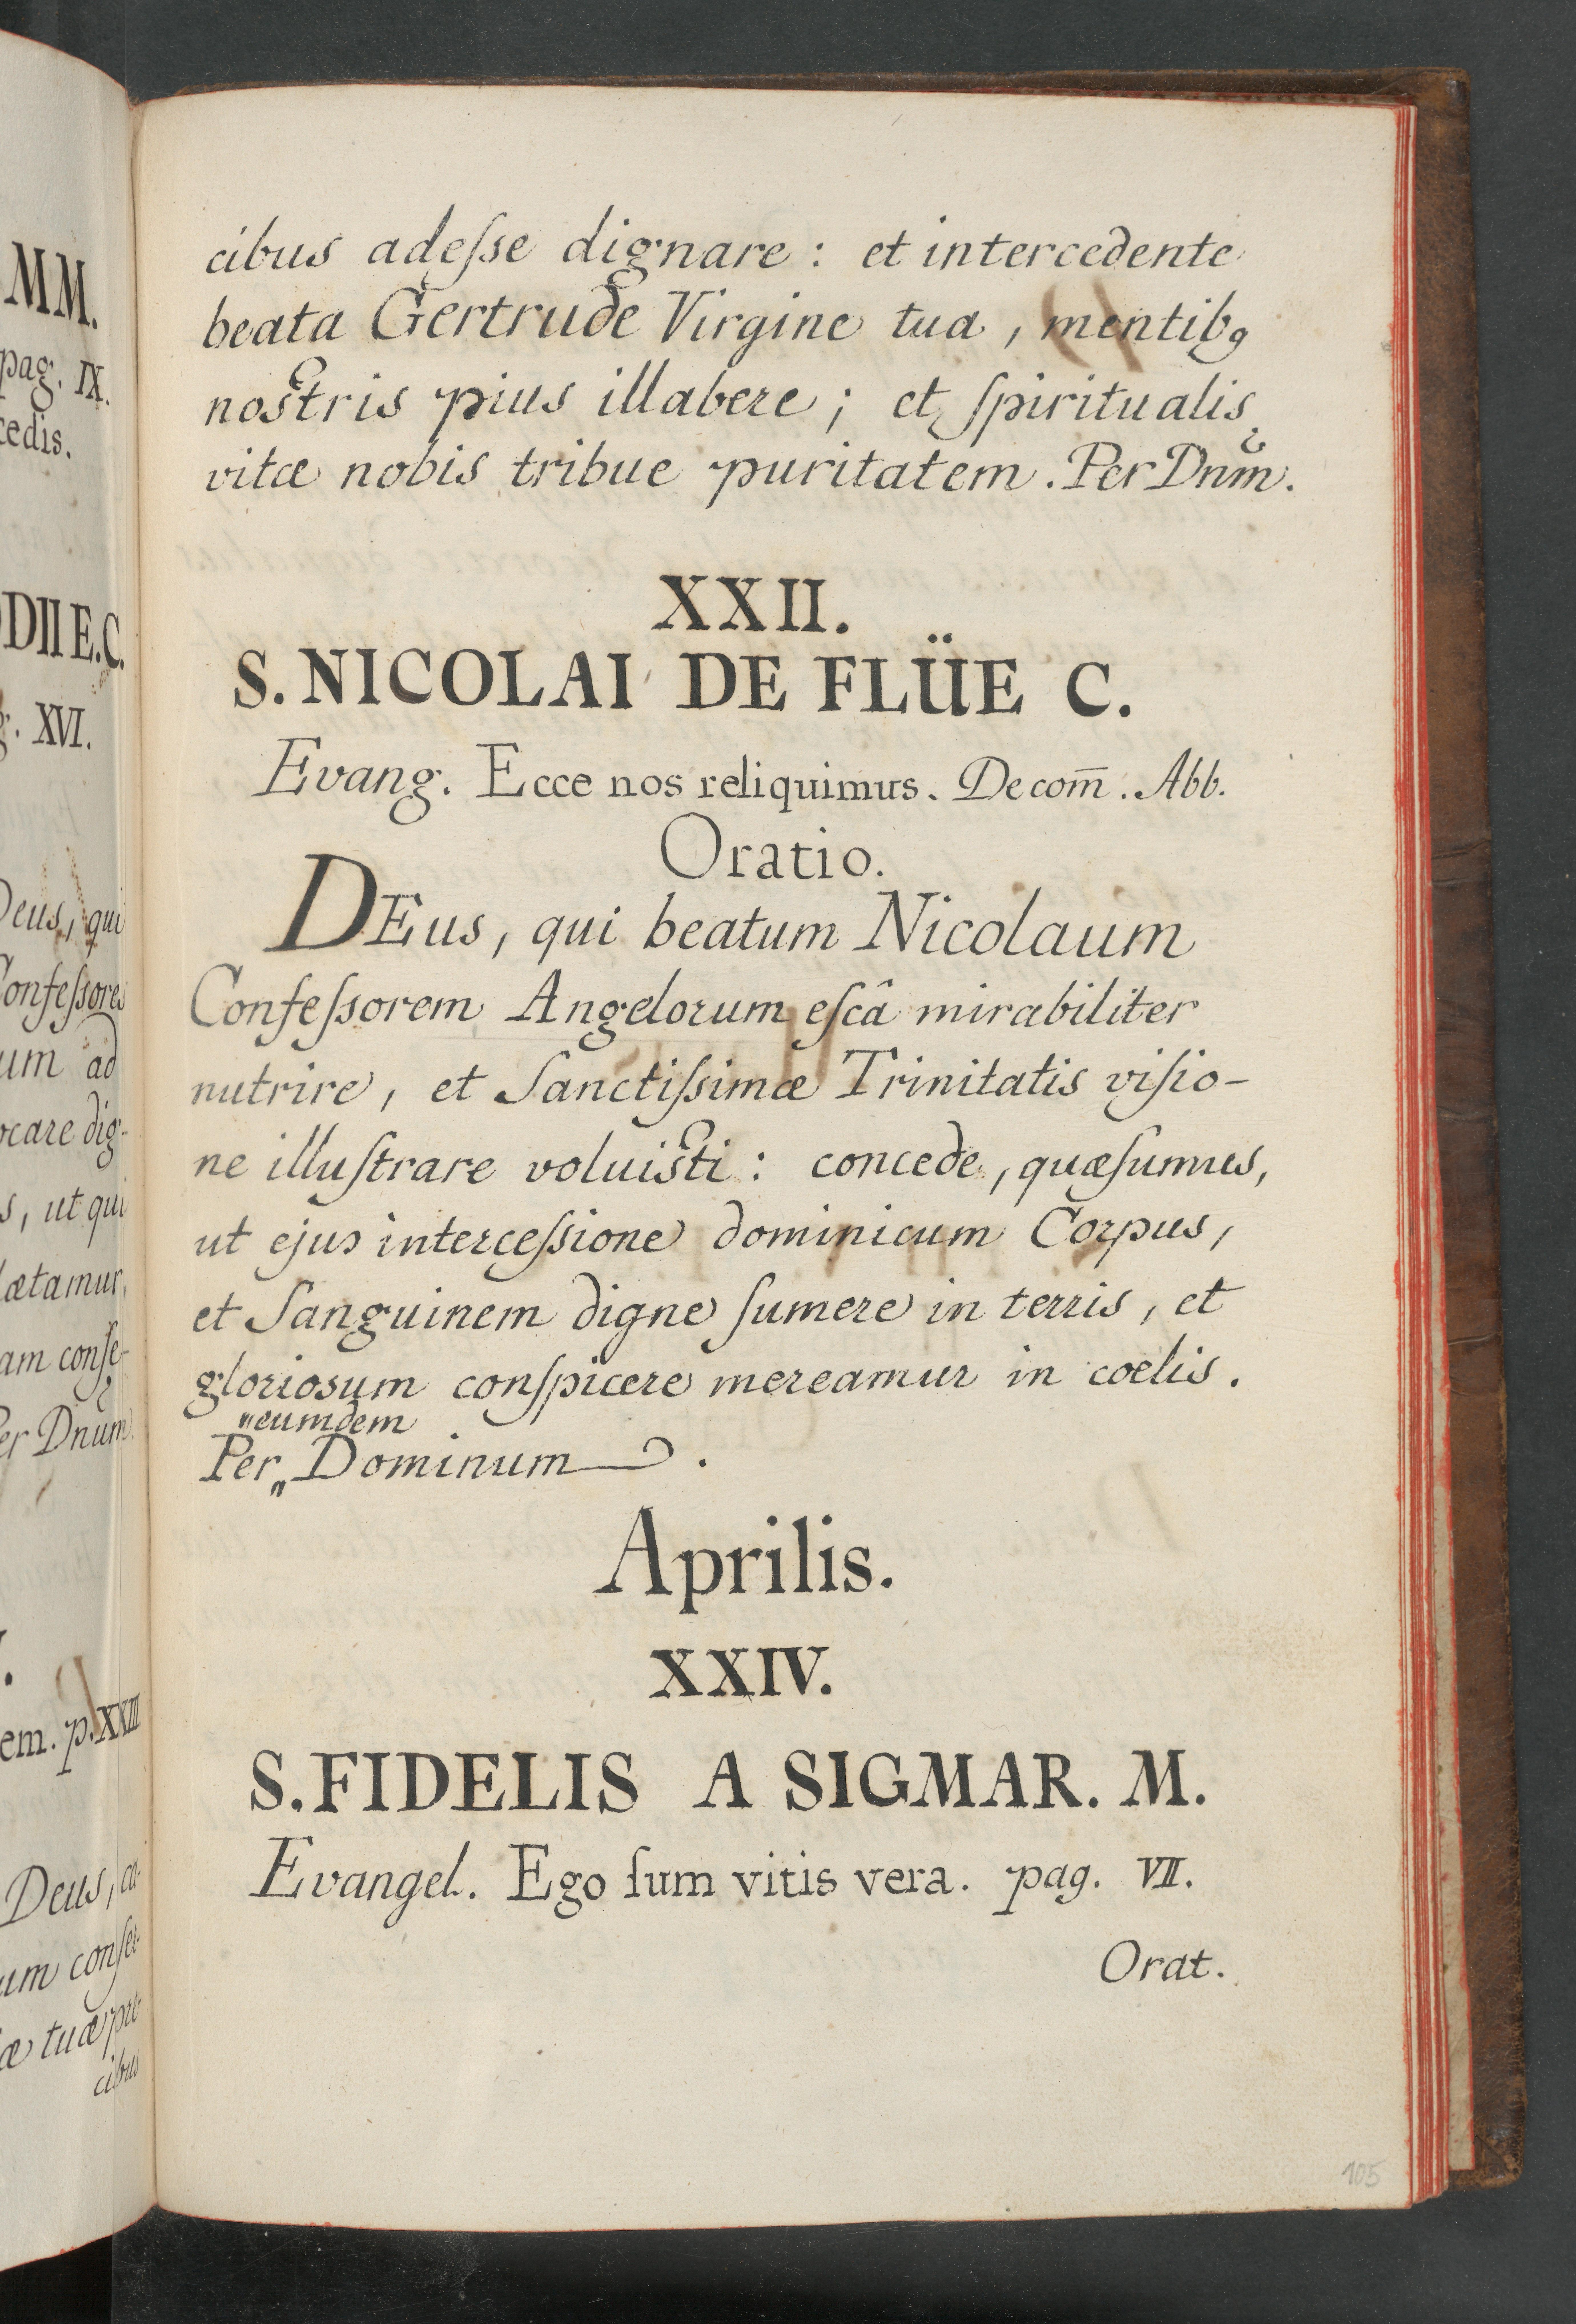 MM.
pag. IX.
cedis.
DII E.C.
g. XVI.
Deus, qui
Confeſsores
um ad
ocare dig-
s, ut qui
lætamur,
am conſe-
Per Dnum.
em. p. XXIII
Deus, ca-
um conſe-
æ tuæ pre-
cibus
cibus adeſse dignare : et intercedente
beata Gertrude Virgine tua, mentibꝫ
nostris pius illabere ; et ſpiritualis
vitæ nobis tribue puritatem. Per Dnm̃.
XXII.
S. NICOLAI DE FLÜE C.
Evang. Ecce nos reliquimus. De com̄. Abb.
Oratio.
DEus, qui beatum Nicolaum
Confeſsorem Angelorum eſcâ mirabiliter
nutrire, et Sanctiſsimæ Trinitatis viſio-
ne illuſtrare voluisti : concede, quæſumus,
ut ejus interceſsione dominicum Corpus,
et Sanguinem digne ſumere in terris, et
gloriosum conſpicere mereamur in coelis.
"eumdem
Per „ Dominum.
Aprilis.
XXIV.
S. FIDELIS A SIGMAR. M.
Evangel. Ego ſum vitis vera. pag. VII.
Orat.
105